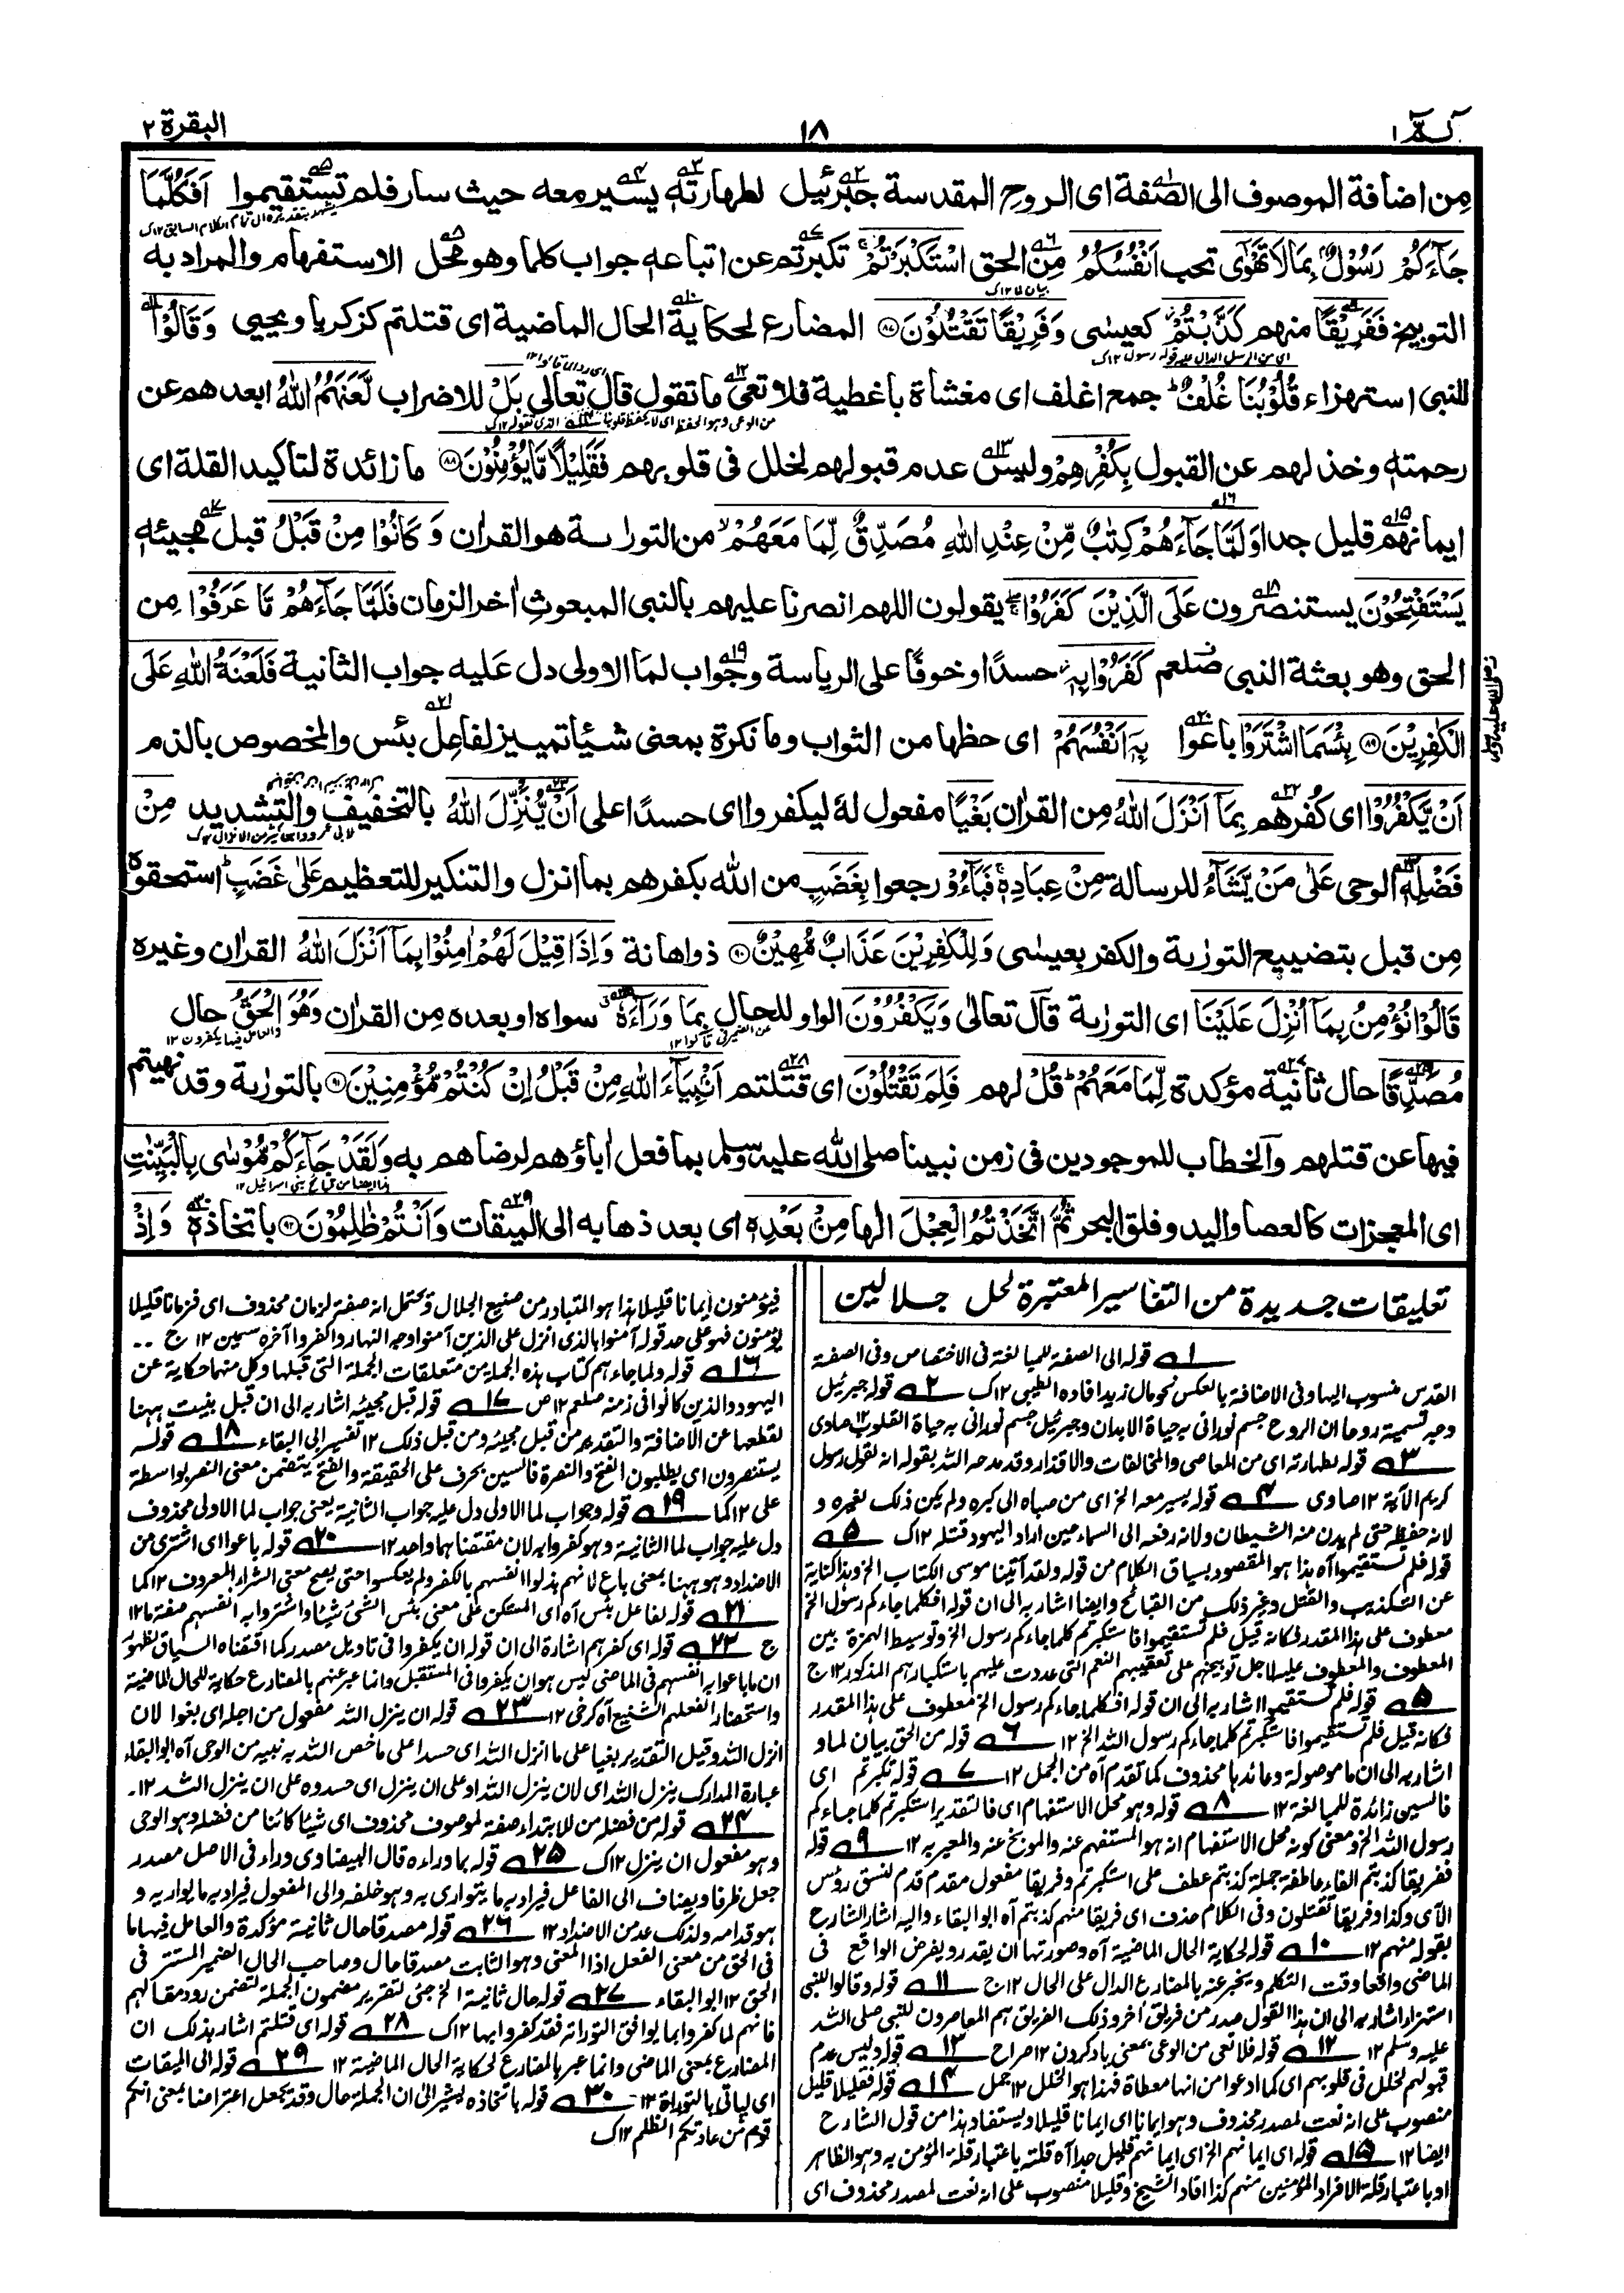 البقرة ٢
١٨
الٓمّٓ ١
من اضافة الموصوف الى الصفة اى الروح المقدسة جبرئيل لطهارته يسير معه حيث سار فلم تستقيموا اَفَكُلَّمَا
جَآءَكُمْ رَسُوْلٌۢ بِمَا لَا تَهْوٰٓى تحب اَنْفُسُكُمُ من الحق اسْتَكْبَرْتُمْ تكبرتم عن اتباعه جواب كلما وهو محل الاستفهام والمراد به
التوبيخ فَفَرِيْقًا منهم كَذَّبْتُمْ كعيسٰى وَفَرِيْقًا تَقْتُلُوْنَ ۝٨٧ المضارع لحكاية الحال الماضية اى قتلتم كزكريا ويحيى وَقَالُوْا
للنبى استهزاء قُلُوْبُنَا غُلْفٌ جمع اغلف اى مغشاة باغطية فلا تعى ما تقول قال تعالى بَلْ للاضراب لَّعَنَهُمُ اللّٰهُ ابعدهم عن
رحمته وخذلهم عن القبول بِكُفْرِهِمْ وليس عدم قبولهم لخلل فى قلوبهم فَقَلِيْلًا مَّا يُؤْمِنُوْنَ ۝٨٨ ما زائدة لتاكيد القلة اى
ايمانهم قليل جدا وَلَمَّا جَآءَهُمْ كِتٰبٌ مِّنْ عِنْدِ اللّٰهِ مُصَدِّقٌ لِّمَا مَعَهُمْ من التورٰىة هو القراٰن وَكَانُوْا مِنْ قَبْلُ قبل مجيئه
يَسْتَفْتِحُوْنَ يستنصرون عَلَى الَّذِيْنَ كَفَرُوْا يقولون اللهم انصرنا عليهم بالنبى المبعوث اٰخر الزمان فَلَمَّا جَآءَهُمْ مَّا عَرَفُوْا من
الحق وهو بعثة النبى صلعم كَفَرُوْا بِهٖ حسدًا او خوفًا على الرياسة وجواب لما الاولى دل عليه جواب الثانية فَلَعْنَةُ اللّٰهِ عَلَى
الْكٰفِرِيْنَ ۝٨٩ بِئْسَمَا اشْتَرَوْا باعوا بِهٖٓ اَنْفُسَهُمْ اى حظها من الثواب وما نكرة بمعنى شيئا تمييز لفاعل بئس والمخصوص بالذم
اَنْ يَّكْفُرُوْا اى كفرهم بِمَآ اَنْزَلَ اللّٰهُ من القراٰن بَغْيًا مفعول له ليكفروا اى حسدًا على اَنْ يُّنَزِّلَ اللّٰهُ بالتخفيف والتشديد مِنْ
فَضْلِهٖ الوحى عَلٰى مَنْ يَّشَآءُ للرسالة مِنْ عِبَادِهٖ فَبَآءُوْ رجعوا بِغَضَبٍ من الله بكفرهم بما انزل والتنكير للتعظيم عَلٰى غَضَبٍ استحقوه
من قبل بتضييع التورٰىة والكفر بعيسٰى وَلِلْكٰفِرِيْنَ عَذَابٌ مُّهِيْنٌ ۝٩٠ ذو اهانة وَاِذَا قِيْلَ لَهُمْ اٰمِنُوْا بِمَآ اَنْزَلَ اللّٰهُ القراٰن وغيره
قَالُوْا نُؤْمِنُ بِمَآ اُنْزِلَ عَلَيْنَا اى التورٰىة قال تعالى وَيَكْفُرُوْنَ الواو للحال بِمَا وَرَآءَهٗ سواه او بعده من القراٰن وَهُوَ الْحَقُّ حال
مُصَدِّقًا حال ثانية مؤكدة لِّمَا مَعَهُمْ قُلْ لهم فَلِمَ تَقْتُلُوْنَ اى قتلتم اَنْۢبِيَآءَ اللّٰهِ مِنْ قَبْلُ اِنْ كُنْتُمْ مُّؤْمِنِيْنَ ۝٩١ بالتورٰىة وقد نهيتم
فيها عن قتلهم والخطاب للموجودين فى زمن نبينا صلى الله عليه وسلم بما فعل اٰباؤهم لرضاهم به وَلَقَدْ جَآءَكُمْ مُّوْسٰى بِالْبَيِّنٰتِ
اى المعجزات كالعصا واليد وفلق البحر ثُمَّ اتَّخَذْتُمُ الْعِجْلَ الٰها مِنْۢ بَعْدِهٖ اى بعد ذهابه الى الميقات وَاَنْتُمْ ظٰلِمُوْنَ ۝٩٢ باتخاذه وَاِذْ
تعليقات جديدة من التفاسير المعتبرة لحل جلالين
١ قوله الى الصفة للمبالغة فى الاختصاص وفى الصفة
القدس منسوب اليها وفى الاضافة بالعكس نحو مال زيد افاده الطيبى ١٢ك ٢ قوله جبرئيل
وجه تسميته روحا ان الروح جسم نورانى به حياة الابدان وجبرئيل جسم نورانى به حياة القلوب ١٢ صاوى
٣ قوله لطهارته اى من المعاصى والمخالفات والاقذار وقد مدحه الله بقوله انه لقول رسول
كريم الآية ١٢ صاوى ٤ قوله يسير معه الخ اى من صباه الى كبره ولم يكن ذلك لغيره و
لانه حفيظه حتى لم يدن منه الشيطان ولانه رفعه الى السماء حين اراد اليهود قتله ١٢ك ٥
قوله فلم تستقيموا آه هذا هو المقصود بسياق الكلام من قوله ولقد آتينا موسى الكتاب الخ وهذا كناية
عن التكذيب والقتل وغير ذلك من القبائح وايضا اشار به الى ان قوله افكلما جاءكم رسول الخ
معطوف على هذا المقدر فكانه قيل فلم تستقيموا فاستكبرتم كلما جاءكم رسول الخ وتوسيط الهمزة بين
المعطوف والمعطوف عليه لاجل توبيخهم على تعقيبهم النعم التى عددت عليهم باستكبارهم المذكور ١٢ ج
٥ قوله فلم تستقيموا اشار به الى ان قوله افكلما جاءكم رسول الخ معطوف على هذا المقدر
فكانه قيل فلم تستقيموا فاستكبرتم كلما جاءكم رسول الله الخ ١٢ ٦ قوله من الحق بيان لما و
اشار به الى ان ما موصولة وعائدها محذوف كما تقدم آه من الجمل ١٢ ٧ قوله تكبرتم اى
فالسين زائدة للمبالغة ١٢ ٨ قوله وهو محل الاستفهام اى فالتقدير استكبرتم كلما جاءكم
رسول الله الخ ومعنى كونه محل الاستفهام انه هو المستفهم عنه والموبخ عنه والمعير به ١٢ ٩ قوله
ففريقا كذبتم الفاء عاطفة جملة كذبتم عطف على استكبرتم وفريقا مفعول مقدم قدم لنسق رؤس
الآى وكذا وفريقا تقتلون وفى الكلام حذف اى فريقا منهم كذبتم آه ابو البقاء واليه اشار الشارح
بقوله منهم ١٢ ١٠ قوله لحكاية الحال الماضية آه وصورتها ان يقدر ويفرض الواقع فى
الماضى واقعا وقت التكلم ويخبر عنه بالمضارع الدال على الحال ١٢ ج ١١ قوله وقالوا للنبى
استهزاء اشار به الى ان هذا القول صدر من فريق اٰخر وذلك الفريق هم المعاصرون للنبى صلى الله
عليه وسلم ١٢ ١٢ قوله فلا تعى من الوعى بمعنى ياد كردن ١٢ صراح ١٣ قوله وليس عدم
قبولهم لخلل فى قلوبهم اى كما ادعوا من انها مغطاة فهذا هو الخلل ١٢ جمل ١٤ قوله فقليلا قليل
منصوب على انه نعت لمصدر محذوف وهو ايمانا اى ايمانا قليلا ويستفاد هذا من قول الشارح
ايضا ١٢ ١٥ قوله اى ايمانهم الخ اى ايمانهم قليل جدا آه قلته باعتبار قلة المؤمن به وهو الظاهر
او باعتبار قلة الافراد المؤمنين منهم كذا افاد الشيخ وقليلا منصوب على انه نعت لمصدر محذوف اى
فيؤمنون ايمانا قليلا هذا هو المتبادر من صنيع الجلال ويحتمل انه صفة لزمان محذوف اى فزمانا قليلا
يؤمنون فهو على حد قوله آمنوا بالذى انزل على الذين آمنوا وجه النهار واكفروا آخره سمين ١٢ ج
١٦ قوله ولما جاءهم كتاب هذه الجملة من متعلقات الجملة التى قبلها وكل منهما حكاية عن
اليهود والذين كانوا فى زمنه صلعم ١٢ ص ١٧ قوله قبل مجيئه اشار به الى ان قبل بنيت ههنا
لقطعها عن الاضافة والتقدير من قبل مجيئه ومن قبل ذلك ١٢ تفسير ابى البقاء ١٨ قوله
يستنصرون اى يطلبون الفتح والنصرة فالسين بحرف على الحقيقة والفتح يتضمن معنى النصر بواسطة
على ١٢ كما ١٩ قوله وجواب لما الاولى دل عليه جواب الثانية يعنى جواب لما الاولى محذوف
دل عليه جواب لما الثانية وهو كفروا به لان مقتضاهما واحد ١٢ ٢٠ قوله باعوا اى اشترى من
الاضداد وهو ههنا بمعنى باع لانهم بذلوا انفسهم بالكفر ولم يعكسوا حتى يصح معنى الشراء المعروف ١٢ كما
٢١ قوله لفاعل بئس آه اى المستكن على معنى بئس الشئ شيئا واشتروا به انفسهم صفة ما ١٢
ج ٢٢ قوله اى كفرهم اشارة الى ان قوله ان يكفروا فى تاويل مصدر كما اقتضاه السياق لظهور
ان ما باعوا به انفسهم فى الماضى ليس هو ان يكفروا فى المستقبل وانما عبر عنهم بالمضارع حكاية للحال الماضية
واستحضارا لفعلهم الشنيع آه كرخى ١٢ ٢٣ قوله ان ينزل الله مفعول من اجله اى بغوا لان
انزل الله وقيل التقدير بغيا على ما انزل الله اى حسدا على ما خص الله به نبيه من الوحى آه ابو البقاء
عبارة المدارك ينزل الله اى لان ينزل الله او على ان ينزل اى حسدوه على ان ينزل الله ١٢
٢٤ قوله من فضله من للابتداء صفة لموصوف محذوف اى شيئا كائنا من فضله وهو الوحى
وهو مفعول ان ينزل ١٢ك ٢٥ قوله بما وراءه قال البيضاوى وراء فى الاصل مصدر
جعل ظرفا ويضاف الى الفاعل فيراد به ما يتوارى به وهو خلفه والى المفعول فيراد به ما يواريه و
هو قدامه ولذلك عد من الاضداد ١٢ ٢٦ قوله مصدقا حال ثانية مؤكدة والعامل فيها ما
فى الحق من معنى الفعل اذ المعنى وهو الثابت مصدقا حال وصاحب الحال الضمير المستتر فى
الحق ١٢ ابو البقاء ٢٧ قوله حال ثانية الخ جئ لتقرير مضمون الجملة لتضمن رد مقالهم
فانهم لما كفروا بما يوافق التوراة فقد كفروا بها ١٢ك ٢٨ قوله اى قتلتم اشار بذلك ان
المضارع بمعنى الماضى وانما عبر بالمضارع لحكاية الحال الماضية ١٢ ٢٩ قوله الى الميقات
اى لياتى بالتوراة ١٢ ٣٠ قوله باتخاذه يشير الى ان الجملة حال وقد يجعل اعتراضا بمعنى انكم
قوم من عادتكم الظلم ١٢ك